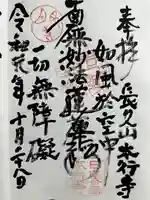 奉拝 長久山 本行寺
如風於空中
南無妙法蓮華経
一切無障礙
令和元年十月二八日